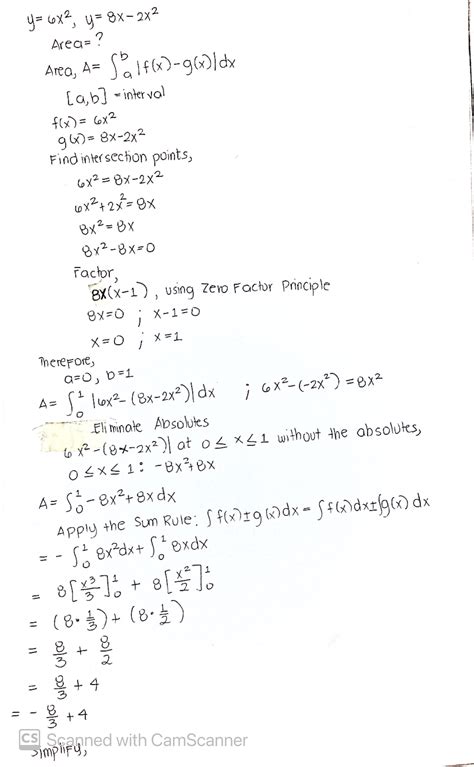 y= 6x², y= 8x-2x²
Area= ?
Area, A= ∫ₐᵇ |f(x)-g(x)|dx
[a,b] = interval
f(x)= 6x²
g(x)= 8x-2x²
Find intersection points,
6x²=8x-2x²
6x²+2x²=8x
8x²=8x
8x²-8x=0
Factor,
8x(x-1), using Zero Factor Principle
8x=0 ; x-1=0
x=0 ; x=1
Therefore,
a=0, b=1
A= ∫₀¹ |6x²-(8x-2x²)|dx ; 6x²-(-2x²)=8x²
Eliminate Absolutes
6x²-(8x-2x²)| at 0≤x≤1 without the absolutes,
0≤x≤1: -8x²+8x
A= ∫₀¹ -8x²+8x dx
Apply the Sum Rule: ∫f(x)±g(x)dx = ∫f(x)dx±∫g(x)dx
= - ∫₀¹ 8x²dx+∫₀¹ 8xdx
= 8[x³/3]₀¹ + 8[x²/2]₀¹
= (8·1/3)+(8·1/2)
= 8/3 + 8/2
= 8/3 + 4
= - 8/3 + 4
CS Scanned with CamScanner
simplify,